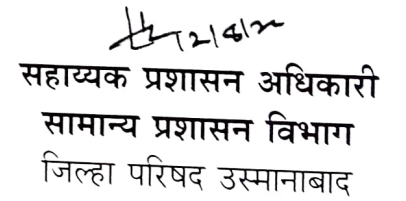 12/8/22
सहाय्यक प्रशासन अधिकारी
सामान्य प्रशासन विभाग
जिल्हा परिषद उस्मानाबाद